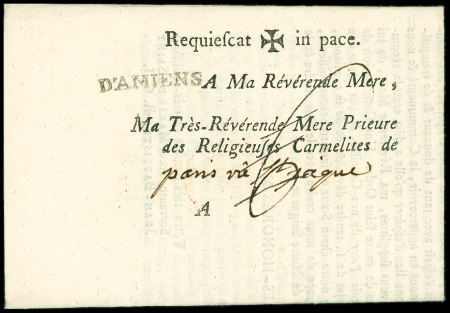 Requieſcat ✠ in pace.
D'AMIENS A Ma Révérende Mere,
Ma Très-Révérende Mere Prieure
des Religieuſes Carmelites de
paris
A